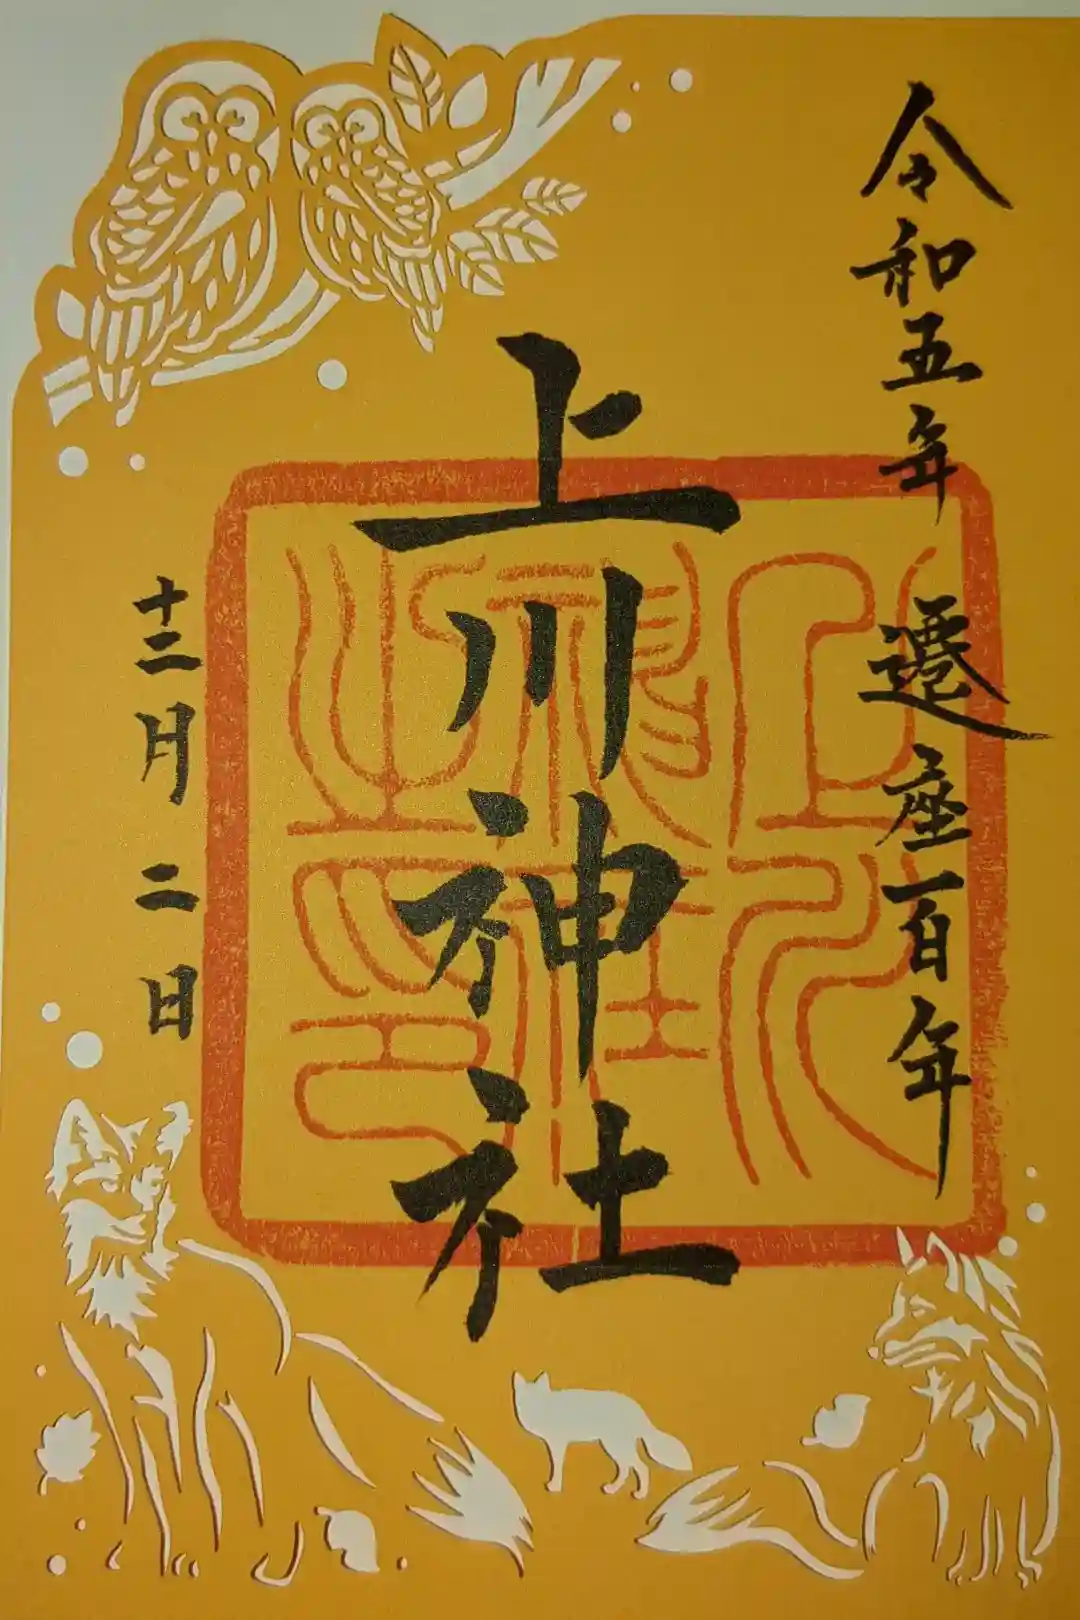 令和五年 遷座百年
上川神社
十二月 二日